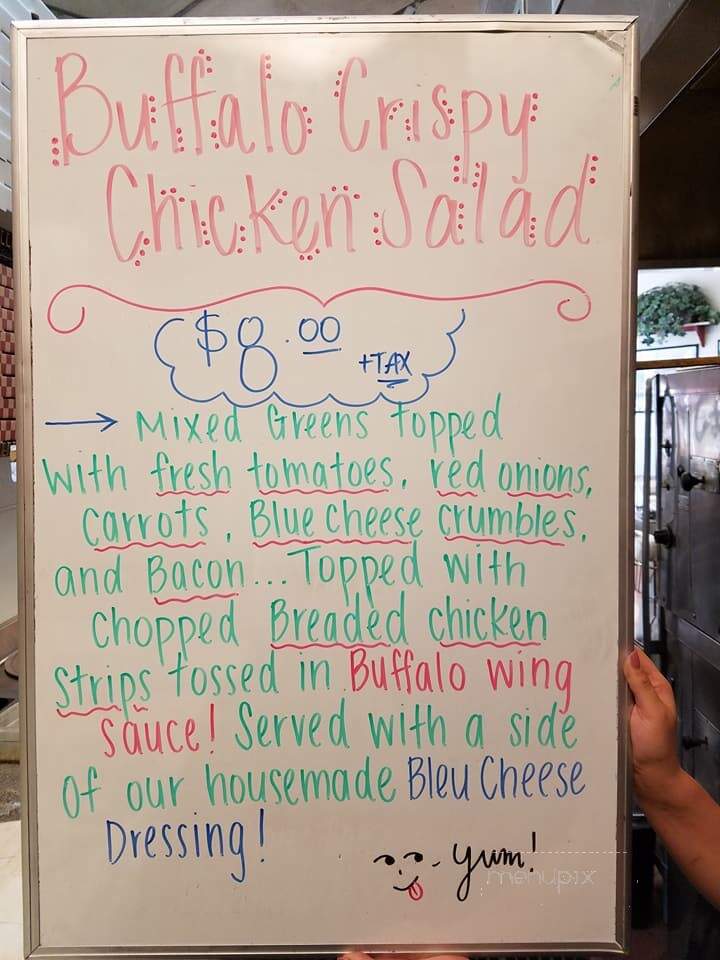 Buffalo Crispy
Chicken Salad
$8.00
+TAX
→ Mixed Greens topped
with fresh tomatoes, red onions,
carrots, Blue cheese crumbles,
and Bacon... Topped with
chopped Breaded chicken
strips tossed in Buffalo wing
sauce! Served with a side
of our housemade Bleu Cheese
Dressing!
- yum!
menupix